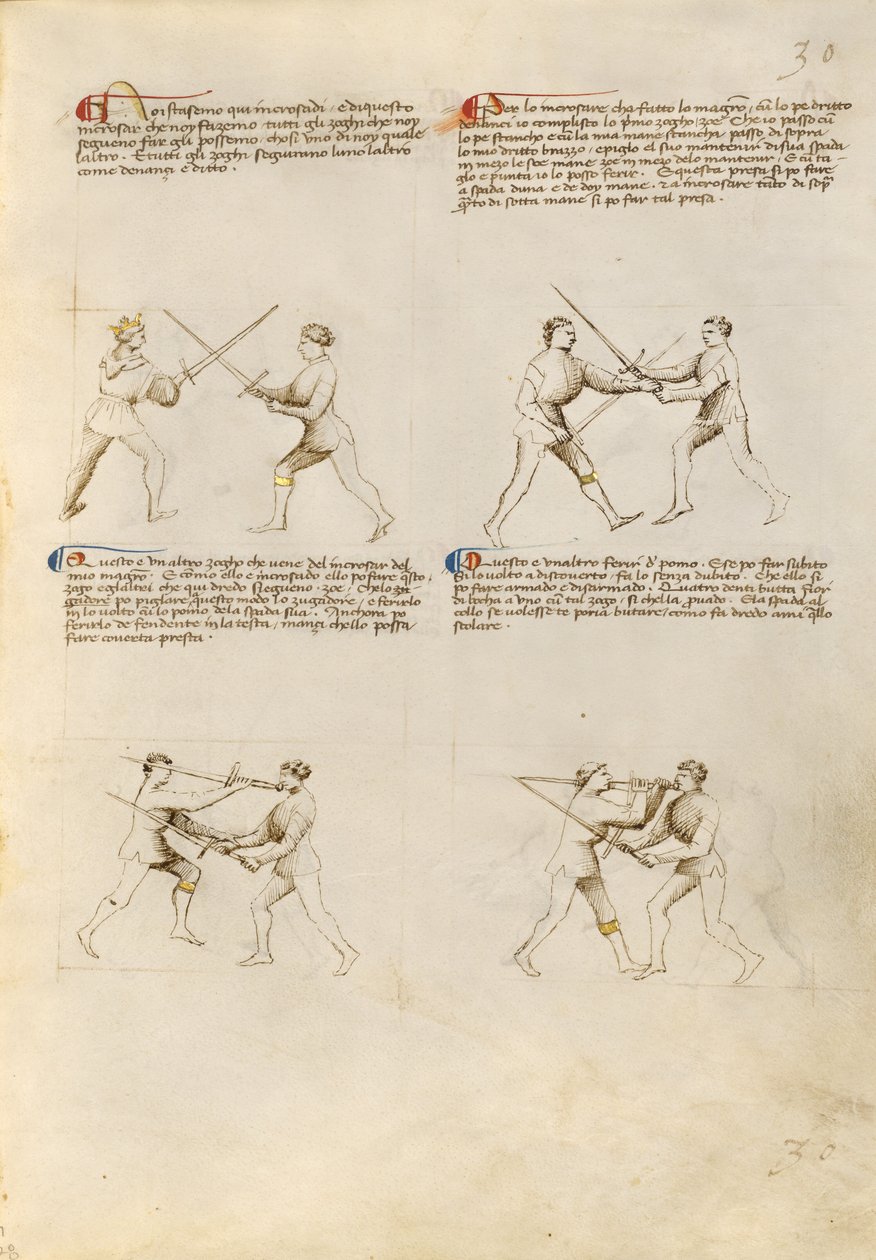 30
Noi stasemo qui incrosadi, e di questo
incrosar che noy fazemo tutti gli zoghi che noy
segueno far gli possemo, chosi uno di noy quale
laltro. E tutti gli zoghi seguirano luno laltro
come denançi è ditto.
Per lo incrosare che fatto lo magro, cu lo pe dritto
denanci io complisto lo pmo zogho, zoe Che io passo cu
lo pe stancho e cu la mia mane stancha passo di sopra
lo suo dritto brazzo, e piglo el suo mantenir di sua spada
in mezo le soe mane zoe in mezo delo mantenir, E cu ta-
glo e punta io lo posso ferir. E questa presa si po fare
a spada duna e de doy mane. a incrosare tato di sop
q̃to di sotta mane si po far tal presa.
Questo e un altro zogho che vene del incrosar del
mio magro. E como ello e incrosado ello po fare q̃sto
zogo e glaltri che qui dredo siegueno. zoe, Chelo zu-
gadore po piglare questo modo lo zugadore, e ferirlo
in lo volto cu lo pomo dela spada sua. Anchora po
ferirlo de fendente in la testa, inançi chello possa
fare coverta presta.
Questo e unaltro ferir d' pomo. E se po far subito
Si lo volto a discoverto, fa lo senza dubito. Che ello si
po fare armado e disarmado. Quatro denti butta fuor
di bocha a uno cu tal zogo, si chella provado. E la spada al
collo se volesse te poria butare, como fa dredo a mi q̃llo
scolare.
30